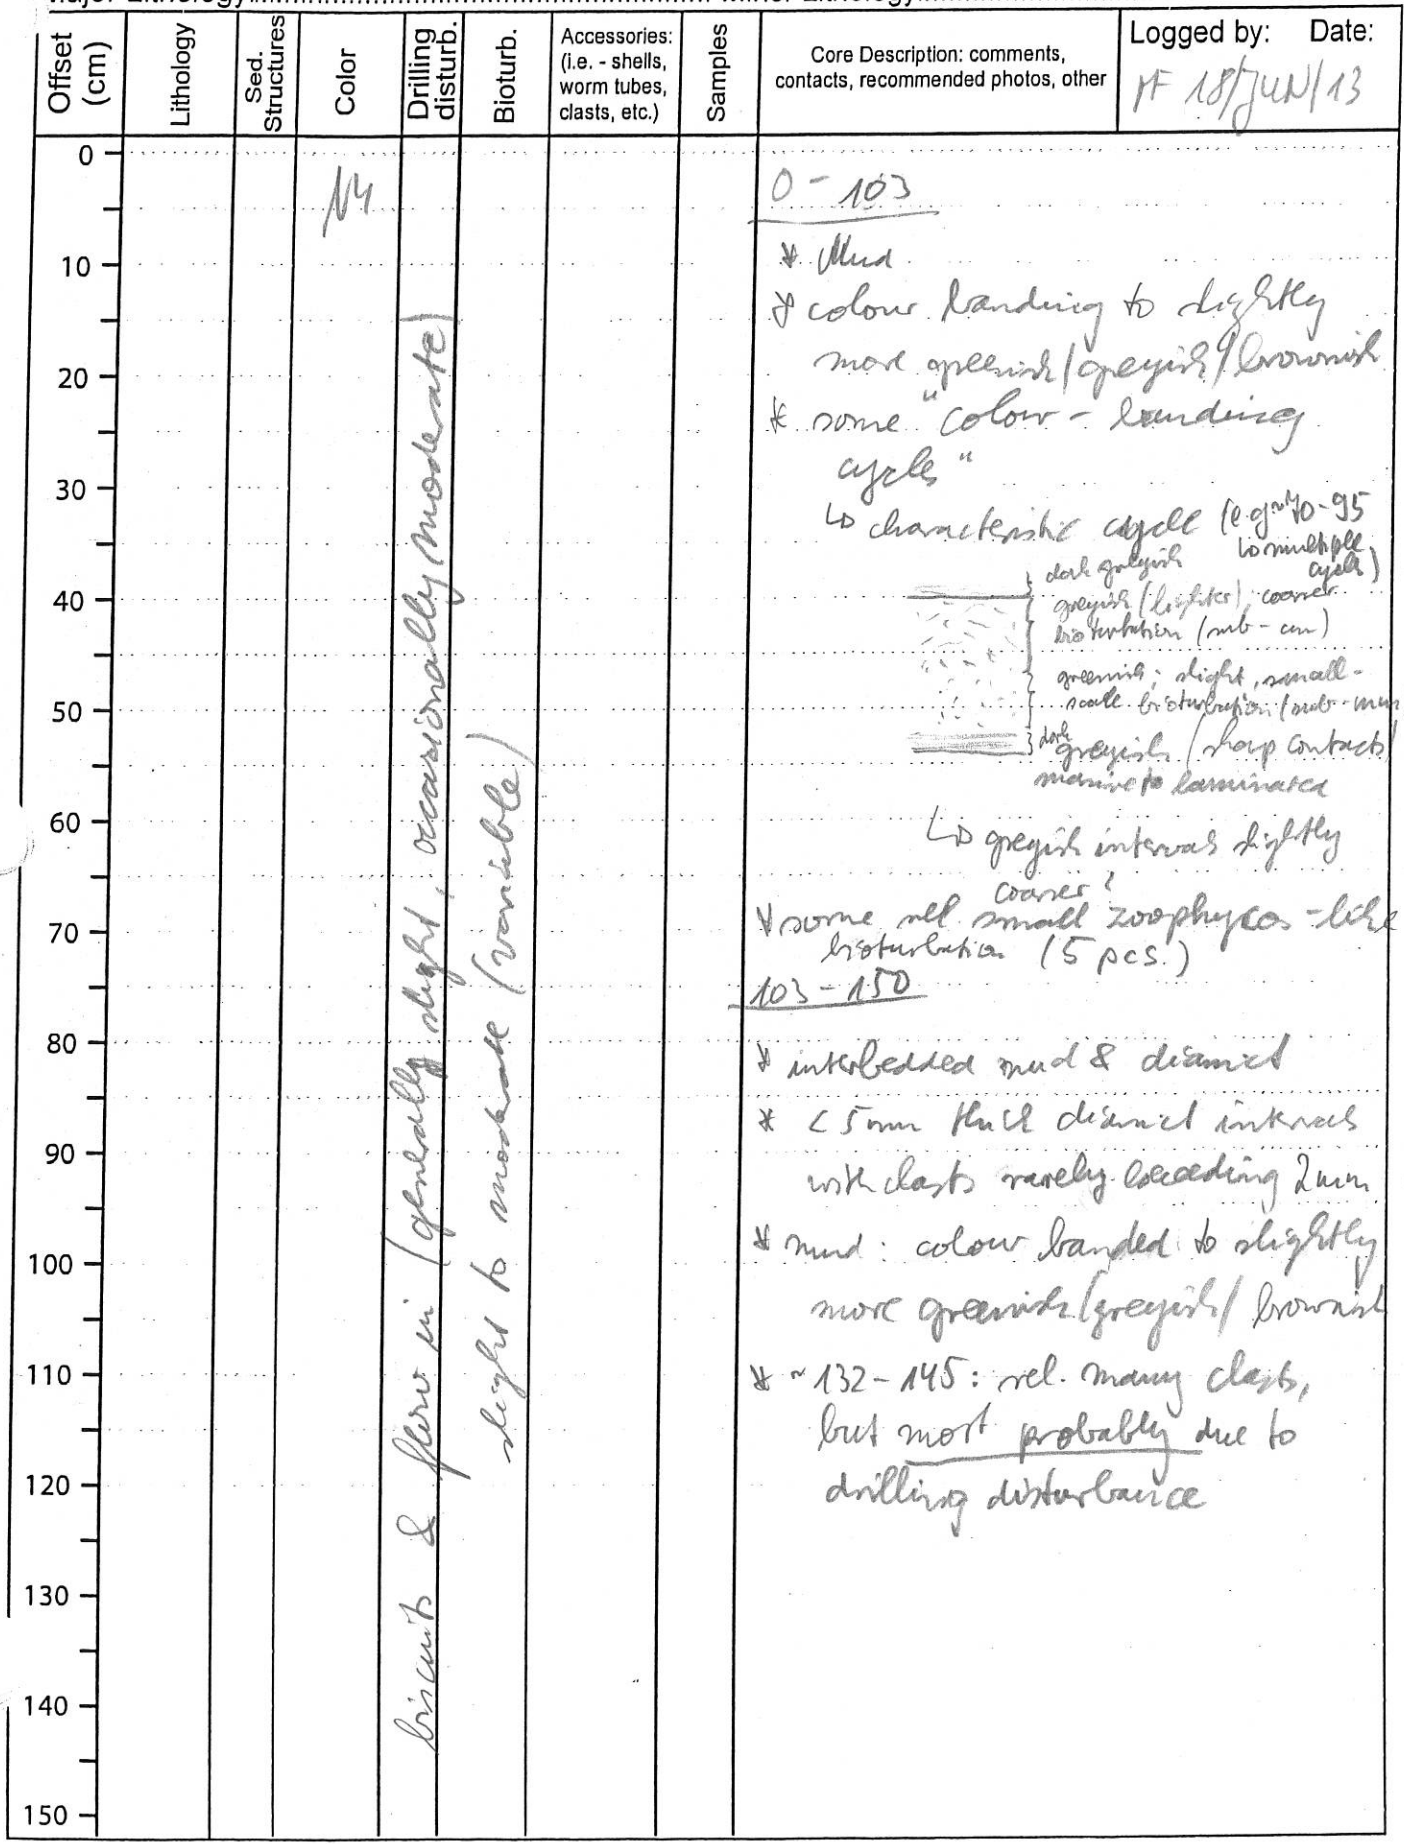 Major Lithology........ Minor Lithology........
Offset (cm)
Lithology
Sed. Structures
Color
Drilling disturb.
Bioturb.
Accessories:
(i.e. - shells,
worm tubes,
clasts, etc.)
Samples
Core Description: comments,
contacts, recommended photos, other
Logged by: Date:
18/JUN/13
0
10
20
30
40
50
60
70
80
90
100
110
120
130
140
150
N4
biscuits & flow in (generally slight, occasionally moderate)
slight to moderate (variable)
0 - 103
* Mud
* colour banding to slightly
more greenish/greyish/brownish
* some "colour - banding
cycles"
↳ characteristic cycle (e.g. ~70-95
↳ multiple
cycles)
dark greyish
greyish (lighter), coarser
bioturbation (sub-cm)
greenish; slight, small-
scale bioturbation (sub-mm
dark
greyish (sharp contacts)
massive to laminated
↳ greyish intervals slightly
coarser?
* some small zoophycos-like
bioturbation (5 pcs.)
103 - 150
* interbedded mud & diamict
* <5mm thick diamict intervals
with clasts rarely exceeding 2mm
* mud: colour banded to slightly
more greenish/greyish/brownish
* ~132-145: rel. many clasts,
but most probably due to
drilling disturbance